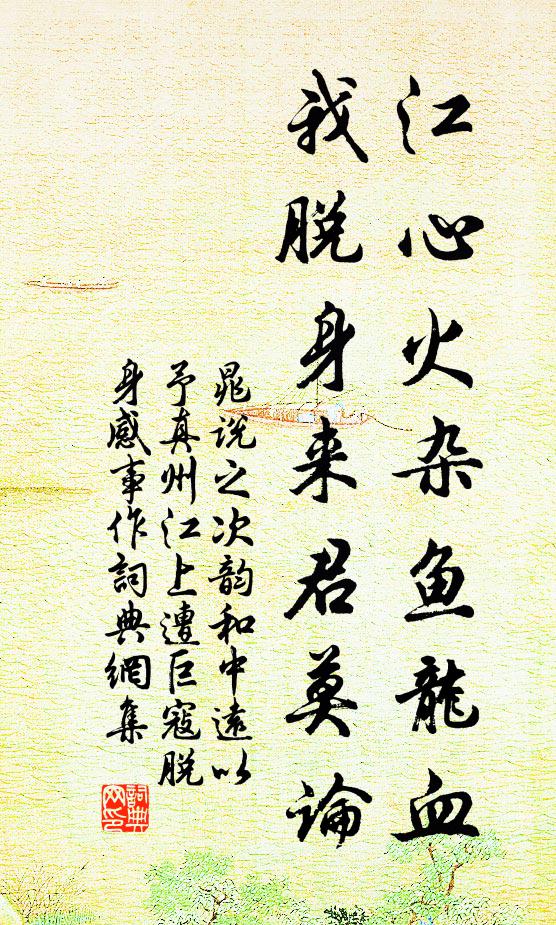 江心火杂鱼龍血
我脱身来君莫論
晁说之次韵和中遠以
予真州江上遭巨寇脱
身感事作詞典網集
詞典网印